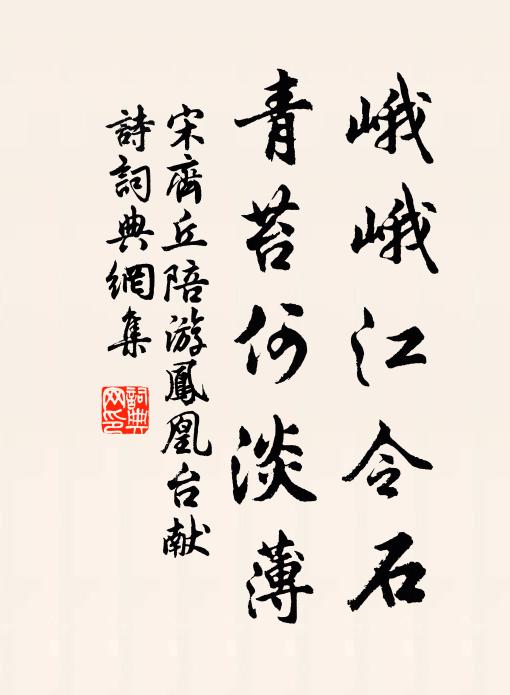 峨峨江令石
青苔何淡薄
宋齊丘陪游鳳凰台献
詩詞典網集
詞典網印